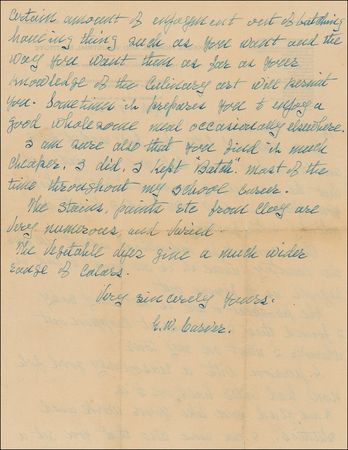 certain amount of enjoyment out of batching
having thing such as you want and the
way you want them as far as your
knowledge of the Culinary art will permit
you. Sometime it prepares you to enjoy a
good wholesome meal occasionally elsewhere.
I am sure also that you find it much
cheaper. I did, I kept "Batch" most of the
time throughout my school career.
The Stains, paints etc from Clay are
Very numerous, and Varied.
The Vegetable dyes give a much wider
range of Colors.
Very sincerely yours.
G.W. Carver.